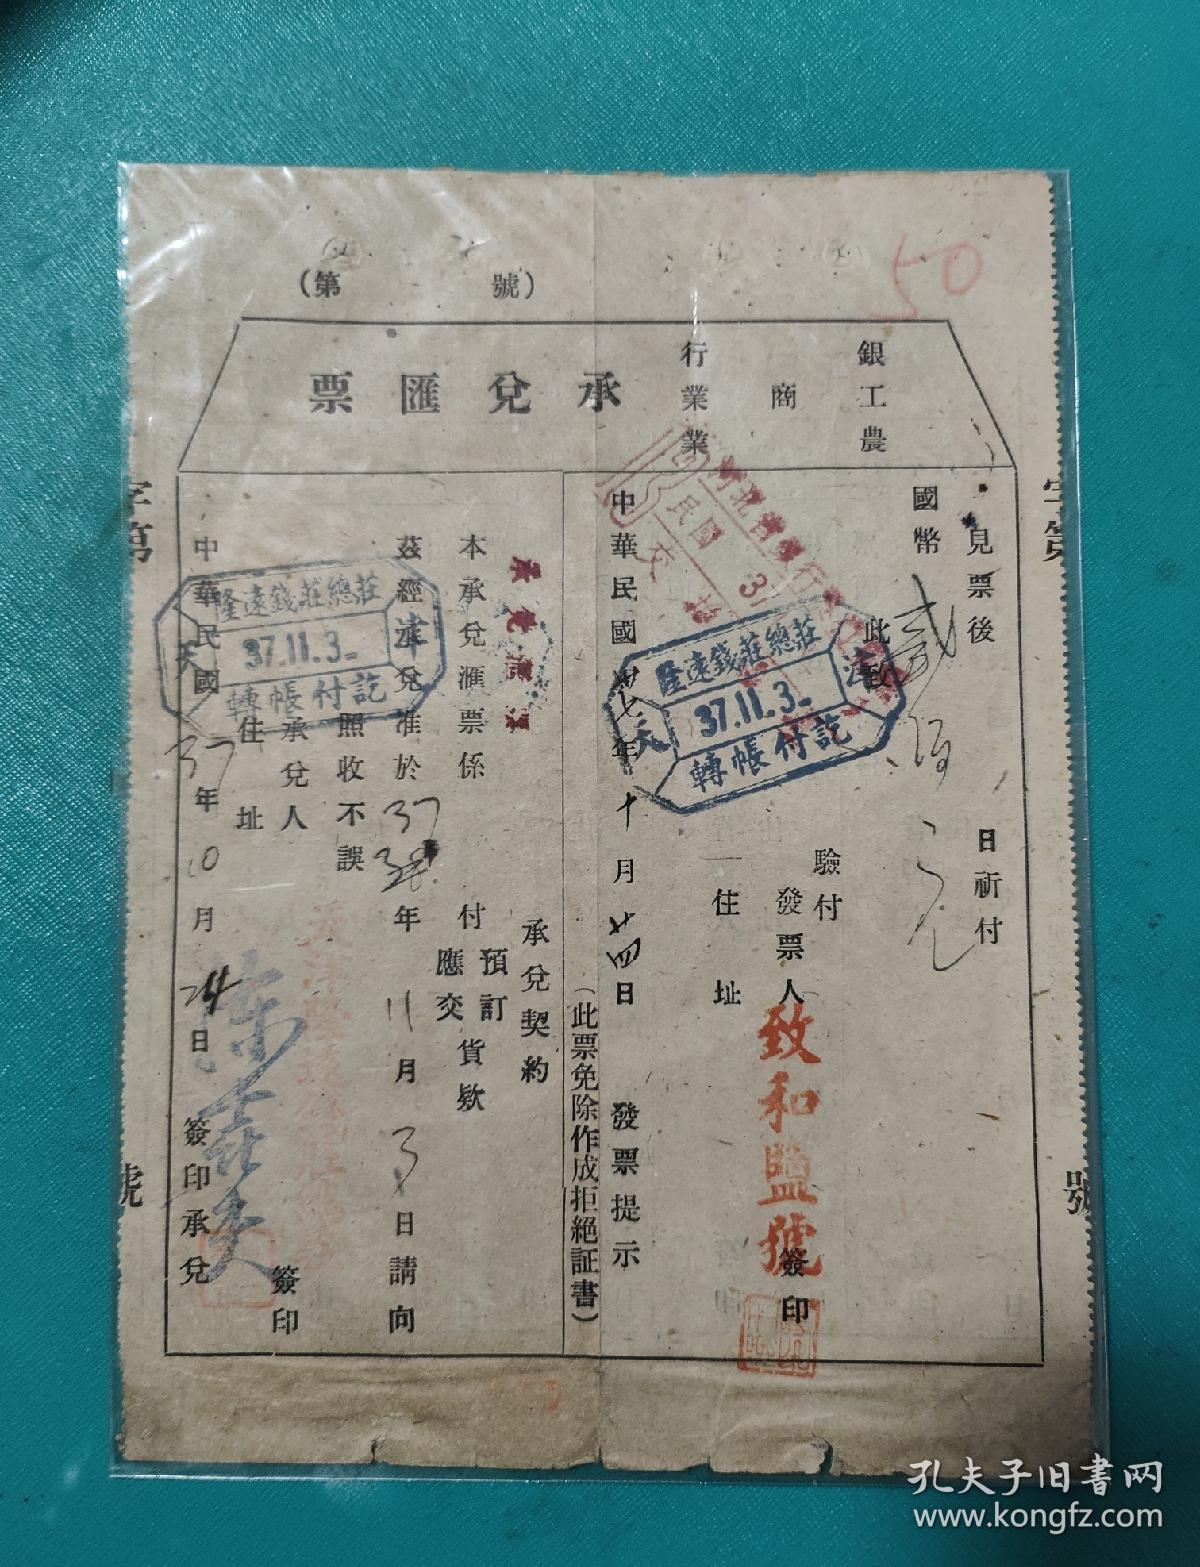 50
（第　　號）
銀行
工　商業
農業
承兌匯票
字第
號
見票後　日祈付
國幣貳
此致
驗付
發票人致和鹽號簽印
住址
中華民國卅七年十月廿四日發票提示
（此票免除作成拒絕証書）
承兌契約
承兌匯票
本承兌滙票係付預訂
應交貨欵
茲經承兌准於37年11月3日請向
照收不誤
承兌人　簽印
住址
中華民國37年10月24日簽印承兌
字第
號
隆遠錢莊總莊
天津
37.11.3
轉帳付訖
隆遠錢莊總莊
天津
37.11.3
轉帳付訖
民國37
交換
孔夫子旧書网
www.kongfz.com